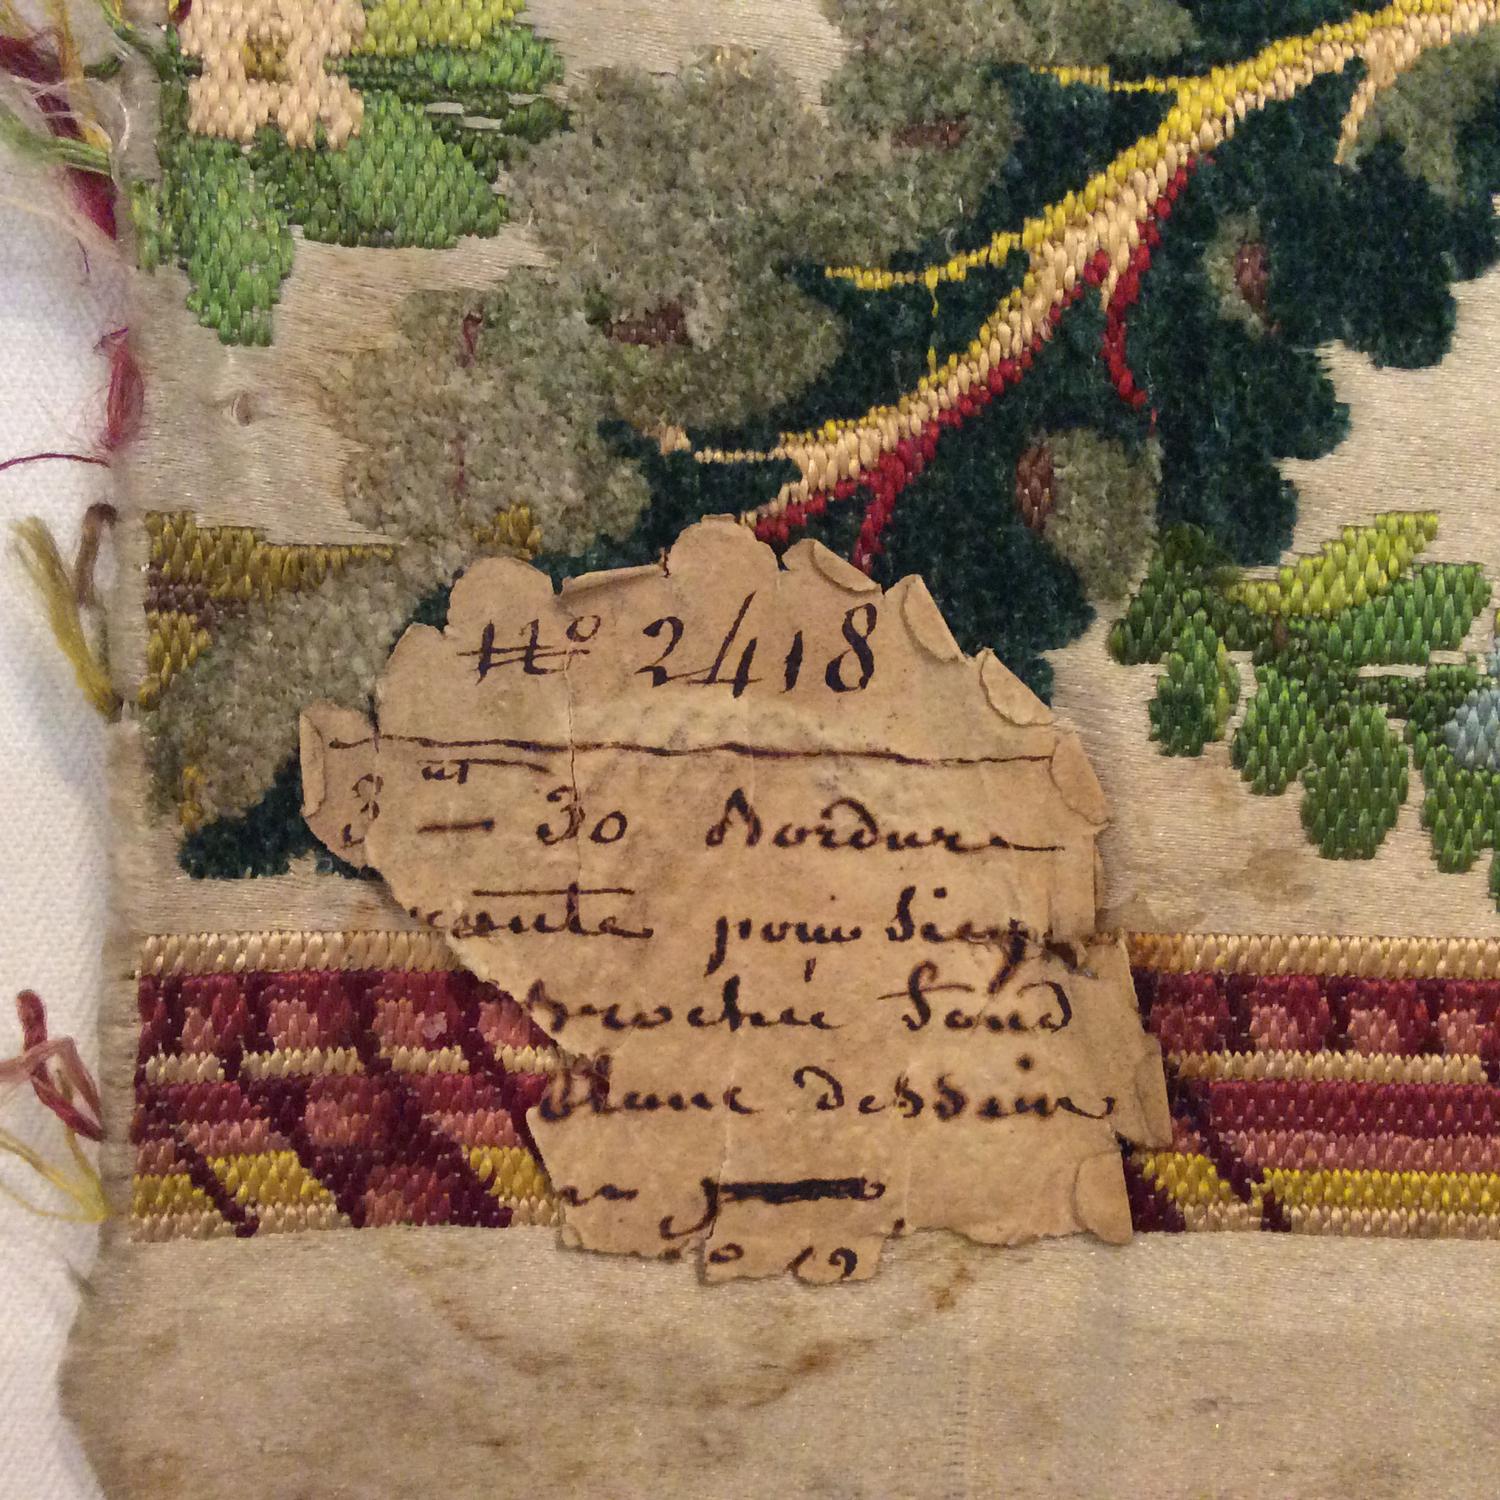 No 2418
3 mt — 30 Bordure
courte pour Siege
brochée fond
blanc dessin